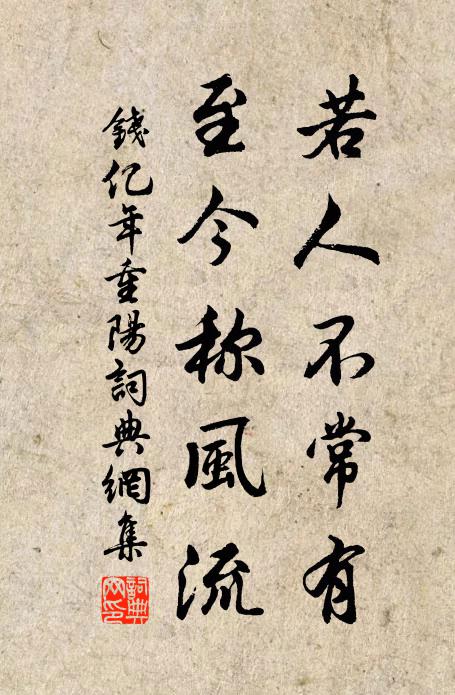 若人不常有
至今称風流
錢亿年重陽詞典網集
詞典網印